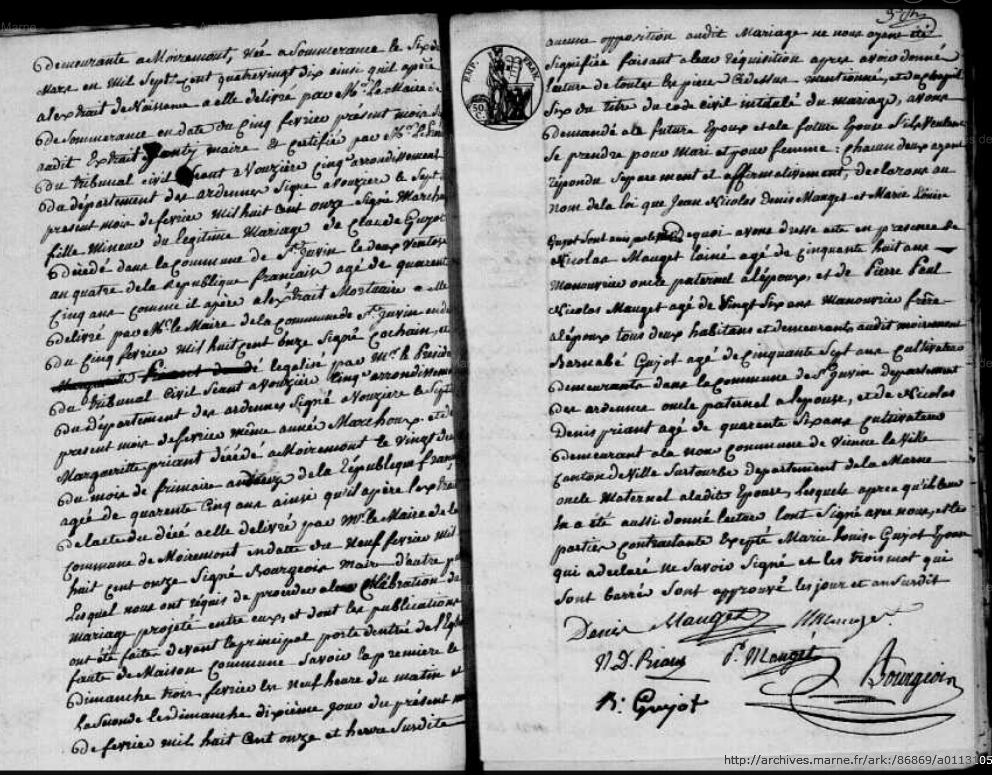 demeurante a Moiremont, Née a Sommerance le Six de
Mars en mil Sept Cent quatre vingt dix ainsi quil apère
a lextrait de Naissence a elle delivré par Mr. le Maire de
de Sommerance en date du Cinq fevrier présent mois
audit Extrait maire & certifiée par Mr. le
du tribunal civil Séant a Vouzière Cinqe arrondissement
du département des ardennes Signé a Vouzière le Sept
present mois de fevrier mil huit Cent onze Signé
fille Mineure du legitime Mariage de Claude Guyot
décédé dans la Commune de St. Juvin le deux Ventose
an quatre de la Republique française agé de quarente
Cinq ans comme il apère a lextrait Mortuaire a elle
delivré par Mr. le Maire de la Commune de St. Juvin en de
du Cinq fevrier mil huit Cent onze Signé Cochain,
legalisé par Mr. le Présid
du tribunal Civil Séant a Vouzière Cinqe arrondissement
du département des ardennes Signé a Vouzière le Sept
présent mois de fevrier même année et de
Margueritte priant décédé a Moiremont le Vingt deux
du mois de frimaire an de la République fran
agée de quarente Cinq ans ainsi qu'il apère lextrait
de lacte du décé a elle delivré par Mr. le Maire de la
Commune de Moiremont en datte du Neuf fevrier mil
huit cent onze Signé Bourgeois Maire d'autre p
Lesquel nous ont réquis de proceder a la Célébration de
mariage projeté entre eux, et dont les publications
ont été faites devant le principal porte dentré de l'Eglise
faute de Maison Commune Savoir la premiere le
dimanche trois fevrier les neuf heure du matin et
la Seconde le dimanche dixième jour du présent m
de fevrier mil huit Cent onze et heure Susdite
aucune opposition audit Mariage ne nous ayant été
Signifiée faisant a leur réquisition apres avoir donné
lecture de toutes les piece Cidessus mentionné, et du Chapitre
Six du titre du code civil intitulé du mariage, avons
demandé a le future Epoux et a la future Epouse S'ils Veulent
Se prendre pour Mari et pour femme : chacun deux ayant
répondu Séparement et affirmativement, declarons au
nom de la loi que Jean Nicolas Denis Manget et Marie Louise
Guyot Sont unis de quoi avons dressé acte en présence de
Nicolas Mauget lainé agé de Cinquante huit ans
Manouvrier oncle paternel a lépoux, et de Pierre Paul
Nicolas Mauget agé de Vingt Six ans Manouvrier frère
a lépoux tous deux habitans et demeurants audit moiremont
Barnabé Guyot agé de Cinquante Sept ans Cultivateur
demeurants dans la commune de St. Juvin departement
des ardennes oncle paternel a lepouse, et de Nicolas
Denis priant agé de quarente Six ans Cultivateur
demeurant a la Commune de Vienne la Ville
Canton de Ville Sur tourbe departement de la Marne
oncle Maternel a ladite Epouse, Lesquels apres qu'il leur
en a été aussi donné lecture lont Signé avec nous, et les
parties Contractante Excepté Marie Louise Guyot Epouse
qui a declaré ne Savoir Signé et les trois mot qui
Sont barré Sont approuvé les jour et an Susdit
Denis Mauget
N. D. Priant P. Mauget
Bourgeois
B. Guyot
http://archives.marne.fr/ark:/86869/a0113105